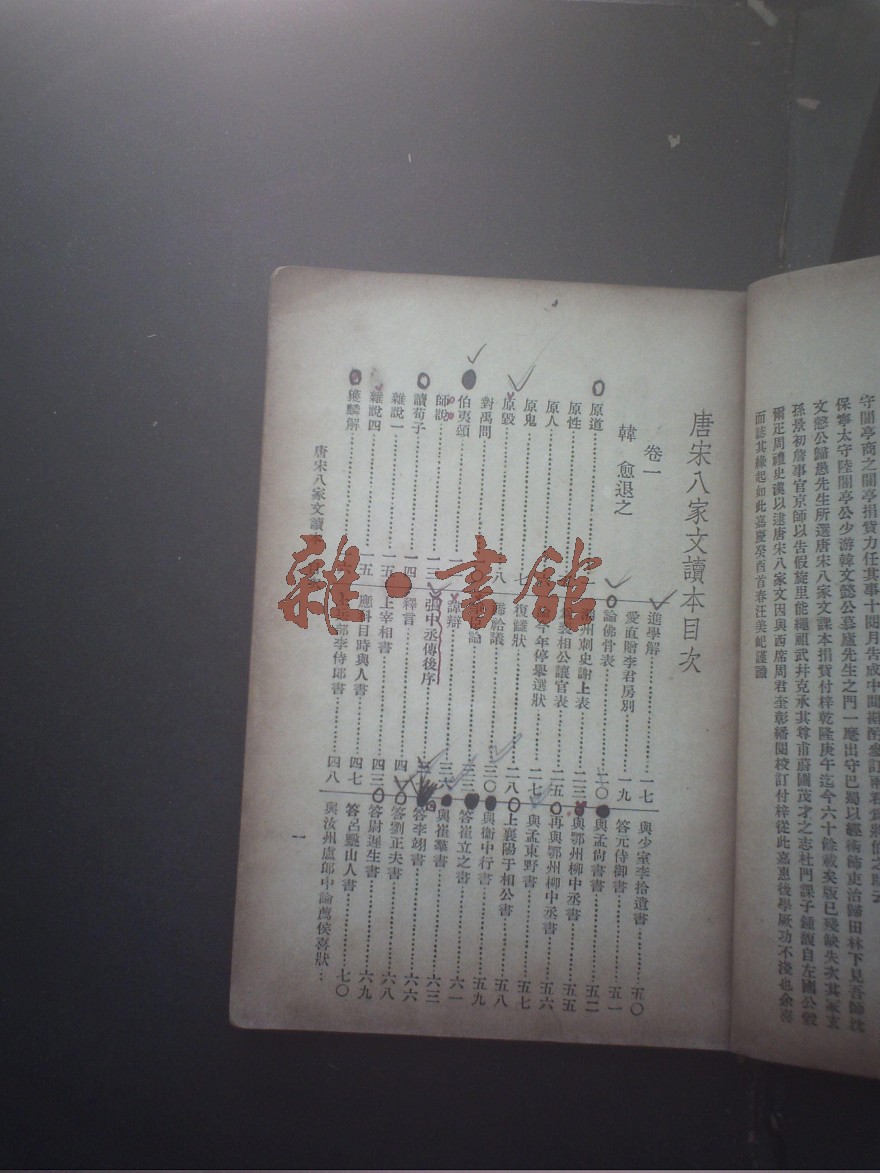 守閶亭商之閶亭捐貲力任其事十閱月告成中間
保寧太守陸閶亭公少游韓文懿公慕廬先生之門一麾出守巴蜀以經術飾吏治歸田林下見吾師沈
文慤公歸愚先生所選唐宋八家文課本捐貲付梓乾隆庚午迄今六十餘載矣版已殘缺失次其冢玄
孫景初詹事官京師以告假旋里能繩祖武幷克承其尊甫蔚圃茂才之志杜門課子鍾馥自左國公穀
爾疋周禮史漢以逮唐宋八家文因與西席周君奎彰繙閱校訂付梓從此嘉惠後學厥功不淺也余喜
而誌其緣起如此嘉慶癸酉首春汪美屺謹識
唐宋八家文讀本目次
卷一
韓愈退之
原道
原性
原人
原鬼 七
原毀 八
對禹問
伯夷頌
師說 一三
讀荀子 一四
雜說一 一五
雜說四 一五
獲麟解
進學解 一七
愛直贈李君房別 一九
論佛骨表 二〇
州刺史謝上表 二三
裴相公讓官表 二五
今年停舉選狀 二七
復讎狀 二八
禘祫議 三〇
論 三三
諱辯
張中丞傳後序
釋言 四
上宰相書 四三
應科目時與人書 四七
部李侍郎書 四八
與少室李拾遺書 五〇
答元侍御書 五一
與孟尚書書 五二
與鄂州柳中丞書 五五
再與鄂州柳中丞書 五六
與孟東野書 五七
上襄陽于相公書 五八
與衞中行書 五九
答崔立之書 六一
與崔羣書 六三
答李翊書 六六
答劉正夫書 六八
答尉遲生書 六九
答呂毉山人書 七〇
與汝州盧郎中論薦侯喜狀
唐宋八家文讀
一
雜·書館